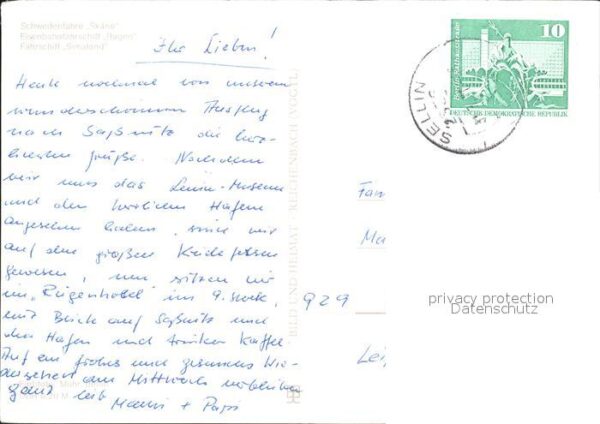 Schwedenfähre „Skåne“
Eisenbahnfährschiff „Rügen“
Fährschiff „Svealand“
Ihr Lieben!
Heute nochmal von unserem
wunderschönen Ausflug
nach Saßnitz die herz-
lichsten Grüße. Nachdem
wir uns das Lenin-Museum
und den herrlichen Hafen
angesehen haben, sind wir
auf den großen Kreidefelsen
gewesen, nun sitzen wir
im „Rügenhotel“ im 9. Stock,
mit Blick auf Saßnitz und
den Hafen und trinken Kaffee.
Auf ein frohes und gesundes Wie-
dersehen am Mittwoch verbleiben
ganz lieb
Mausi + Papi
BILD UND HEIMAT REICHENBACH (VOGTL)
10
Berlin, Rathausstraße
DEUTSCHE DEMOKRATISCHE REPUBLIK
SELLIN
Fam
Ma
929
Lei
privacy protection
Datenschutz